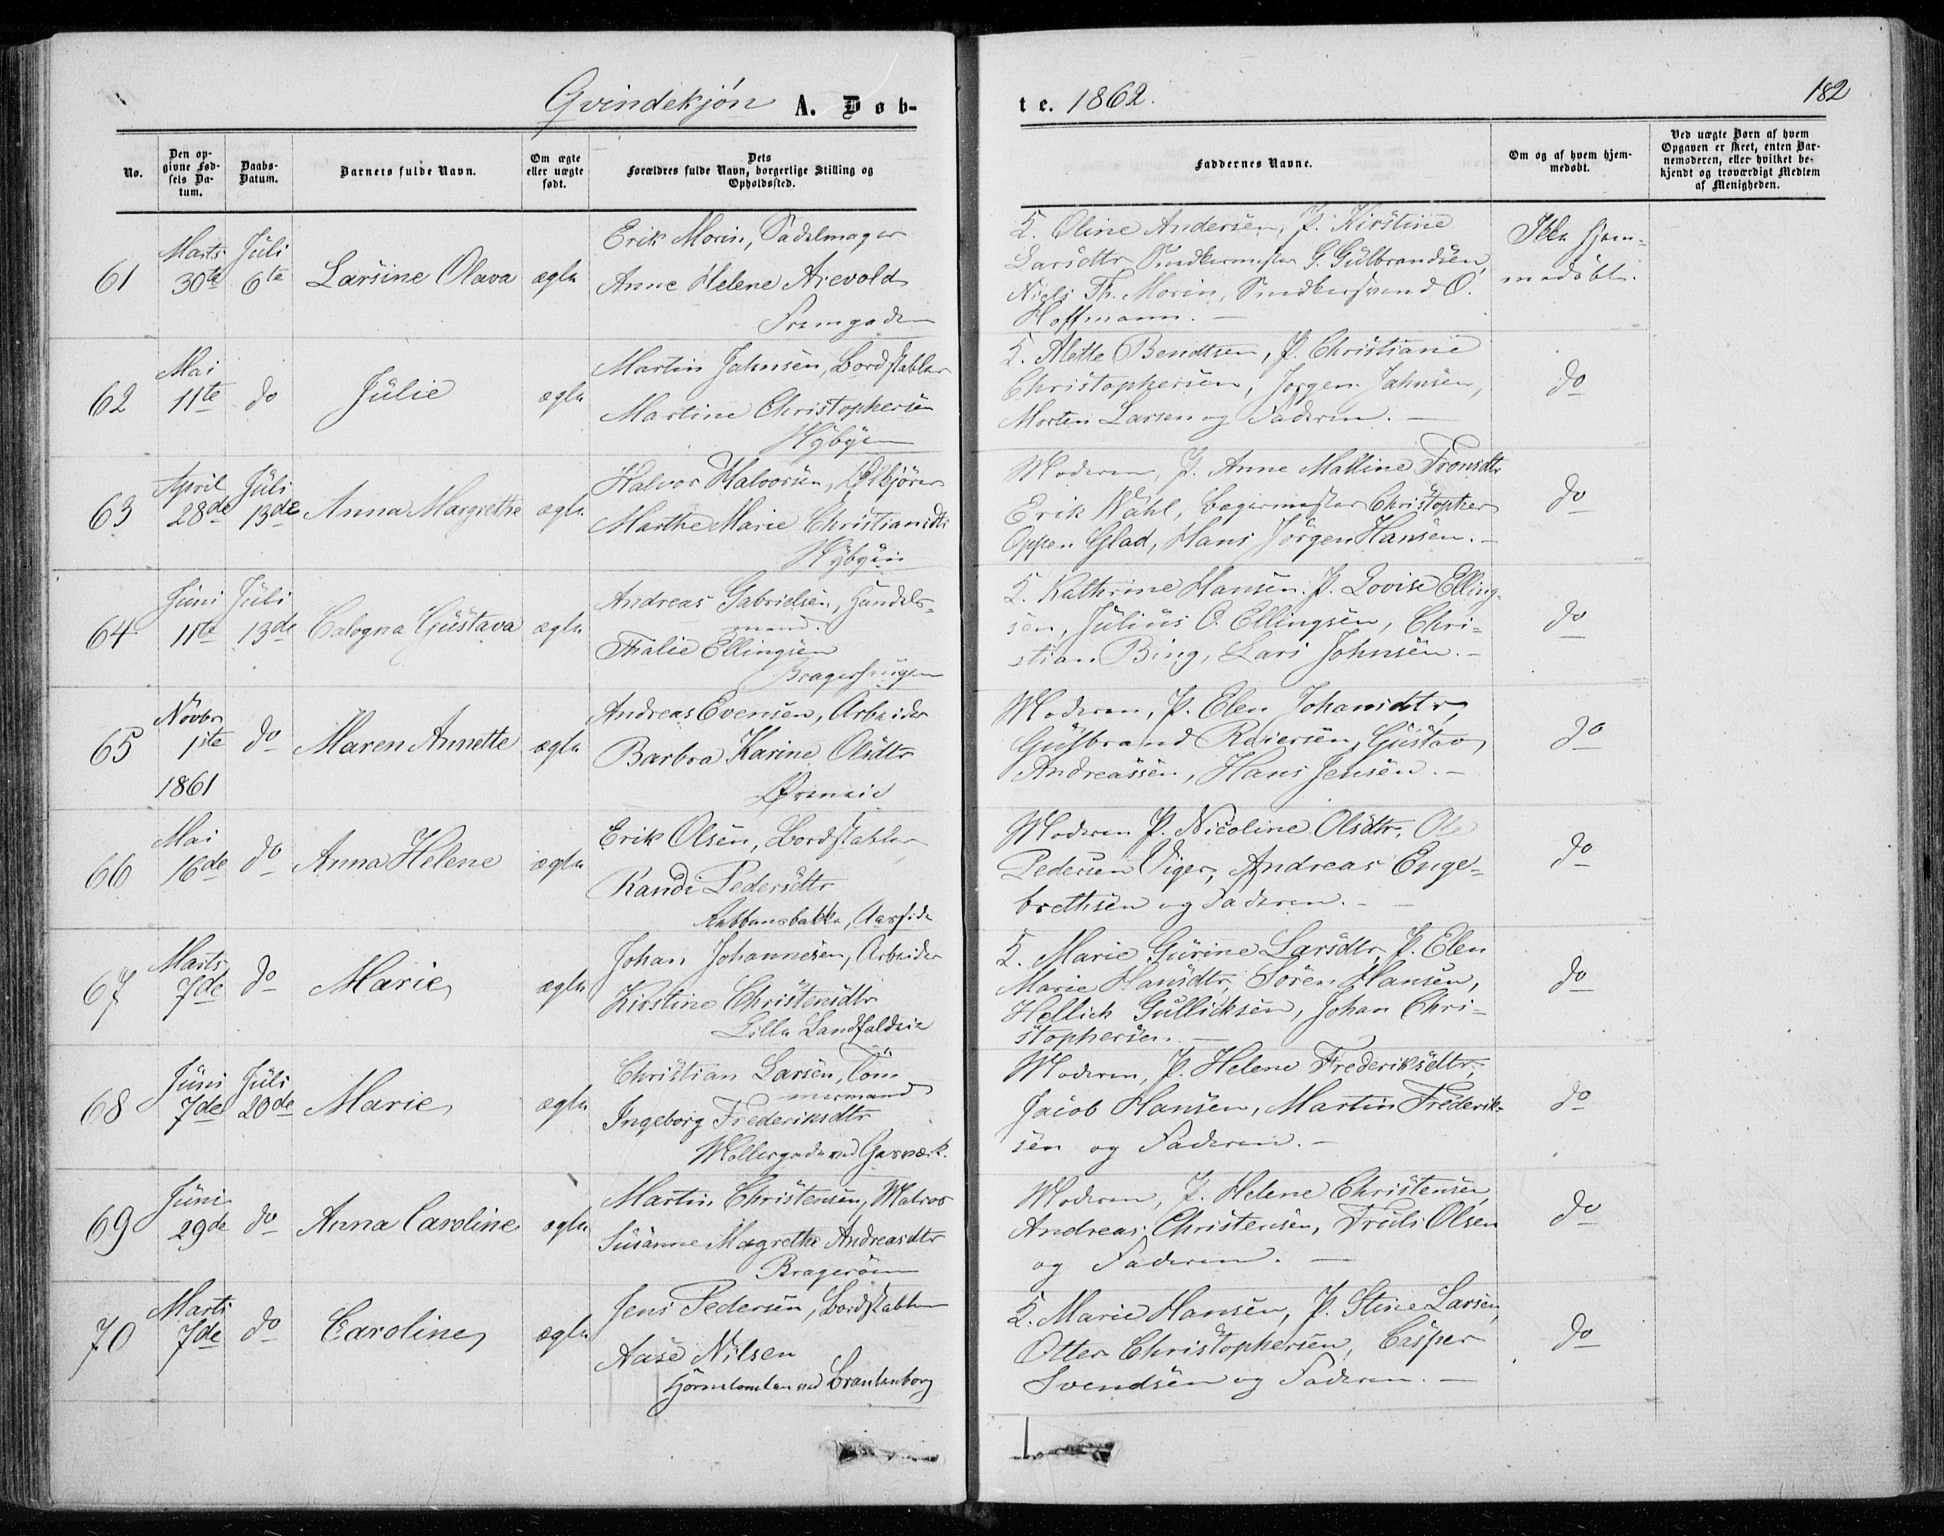 Qvindekjøn A. Døb-
No.
Den op-
givne Fød-
sels Da-
tum.
Daabs-
Datum.
Barnets fulde Navn.
Om ægte
eller uægte
født.
Dets
Forældres fulde Navn, borgerlige Stilling og
Opholdssted.
61
Marts
30te
Juli
6te
Larsine Olava
ægte
Erik Morin, Sadelmager
Anne Helene Arevold
62
Mai
11te
do
Julie
ægte
Martin Jahnsen, Bordstabler
Martine Christophersen
Nybyen
63
April
28de
Juli
13de
Anna Margrethe
ægte
Halvor Halvorsen, Ølkjører
Marthe Marie Christiansdtr
Nybyen
64
Juni
11te
Juli
13de
Calogna Gustava
ægte
Andreas Gabrielsen, Handels-
mand.
Thalie Ellingsen
65
Novbr
1ste
1861
do
Maren Annette
ægte
Andreas Evensen, Arbeider
Barbra Karine Olsdtr
Øreneie
66
Mai
16de
do
Anna Helene
ægte
Erik Olsen, Bordstabler
Randi Pedersdtr
67
Marts
7de
do
Marie
ægte
Johan Johannesen, Arbeider
Kirstine Christensdtr
Lille Landfaldeie
68
Juni
7de
Juli
20de
Marie
ægte
Christian Larsen, Töm
mermand
Ingeborg Frederiksdtr
Møllergade ved Gasværk.
69
Juni
29de
do
Anna Caroline
ægte
Martin Christensen, Matros
Susanne Magrethe Andreasdtr
Bragerøen
70
Marts
7de
do
Caroline
ægte
Jens Pedersen, Bordstabler
Aase Nilsen
Hjørnetomten ved Brantenborg
te. 1862.
182
Faddernes Navne.
Om og af hvem hjem-
medøbt.
Ved uægte Børn af hvem
Opgaven er skeet, enten Bar-
nemoderen, eller hvilket be-
kjendt og troværdigt Medlem
af Menigheden.
K. Oline Andersen, P. Kirstine
Larsdtr Snedkermester G. Gulbrandsen,
Niels Th. Morin, Snedkersvend O.
Hoffmann. -
Ikke hjem-
medøbt.
K. Alette Bendtsen, P. Christiane
Christophersen, Jørgen Jahnsen,
Morten Larsen og Faderen. -
do
Moderen, P. Anne Mattine Fronsdtr
Erik Wahl, Bagermester Christopher
Oppen Glad, Hans Jørgen Hansen. -
do
K. Kathrine Hansen. P. Lovise Elling-
sen, Julius O. Ellingsen, Chri-
stian Bing, Lars Johnsen. -
do
Moderen, P. Elen Johansdtr,
Gulbrand Reiersen, Gustav
Andreassen, Hans Jensen. -
do
Moderen P. Nicoline Olsdtr, Ole
Pedersen Viger, Andreas Enge-
brethsen og Faderen. -
do
K. Marie Gurine Larsdtr, P. Elen
Marie Hansdtr, Søren Hansen,
Hellick Gullicksen, Johan Chri-
stophersen. -
do
Moderen, P. Helene Frederiksdtr,
Jacob Hansen, Martin Frederik-
sen og Faderen. -
do
Moderen, P. Helene Christensen,
Andreas Christensen, Truls Olsen
og Faderen. -
do
K. Marie Hansen, P. Stine Larsen,
Otter Christophersen, Casper
Svendsen og Faderen. -
do